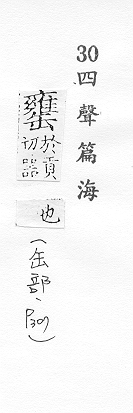 30四聲篇海
罋於貢切器
也
(缶部、